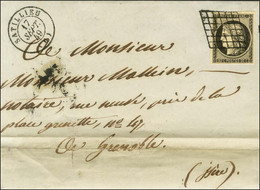 SATILLIEU
17
SEPT.
49
De Monsieur
Monsieur Mathieu,
notaire, rue neuve, près de la
place grenette, No. 47
De Grenoble
(Isère)